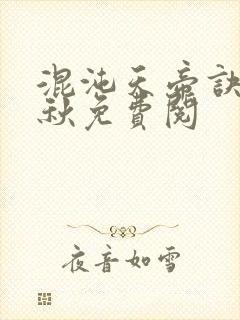 混沌天帝訣
秋免費閱
夜音如雪